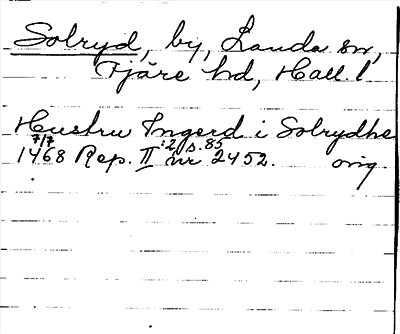 Solryd, by, Landa sn,
Fjäre hd, Hall. l
Hustru Ingerd i Solrydhe
7/7 :2, s. 85
1468 Rep. II nr 2452. orig